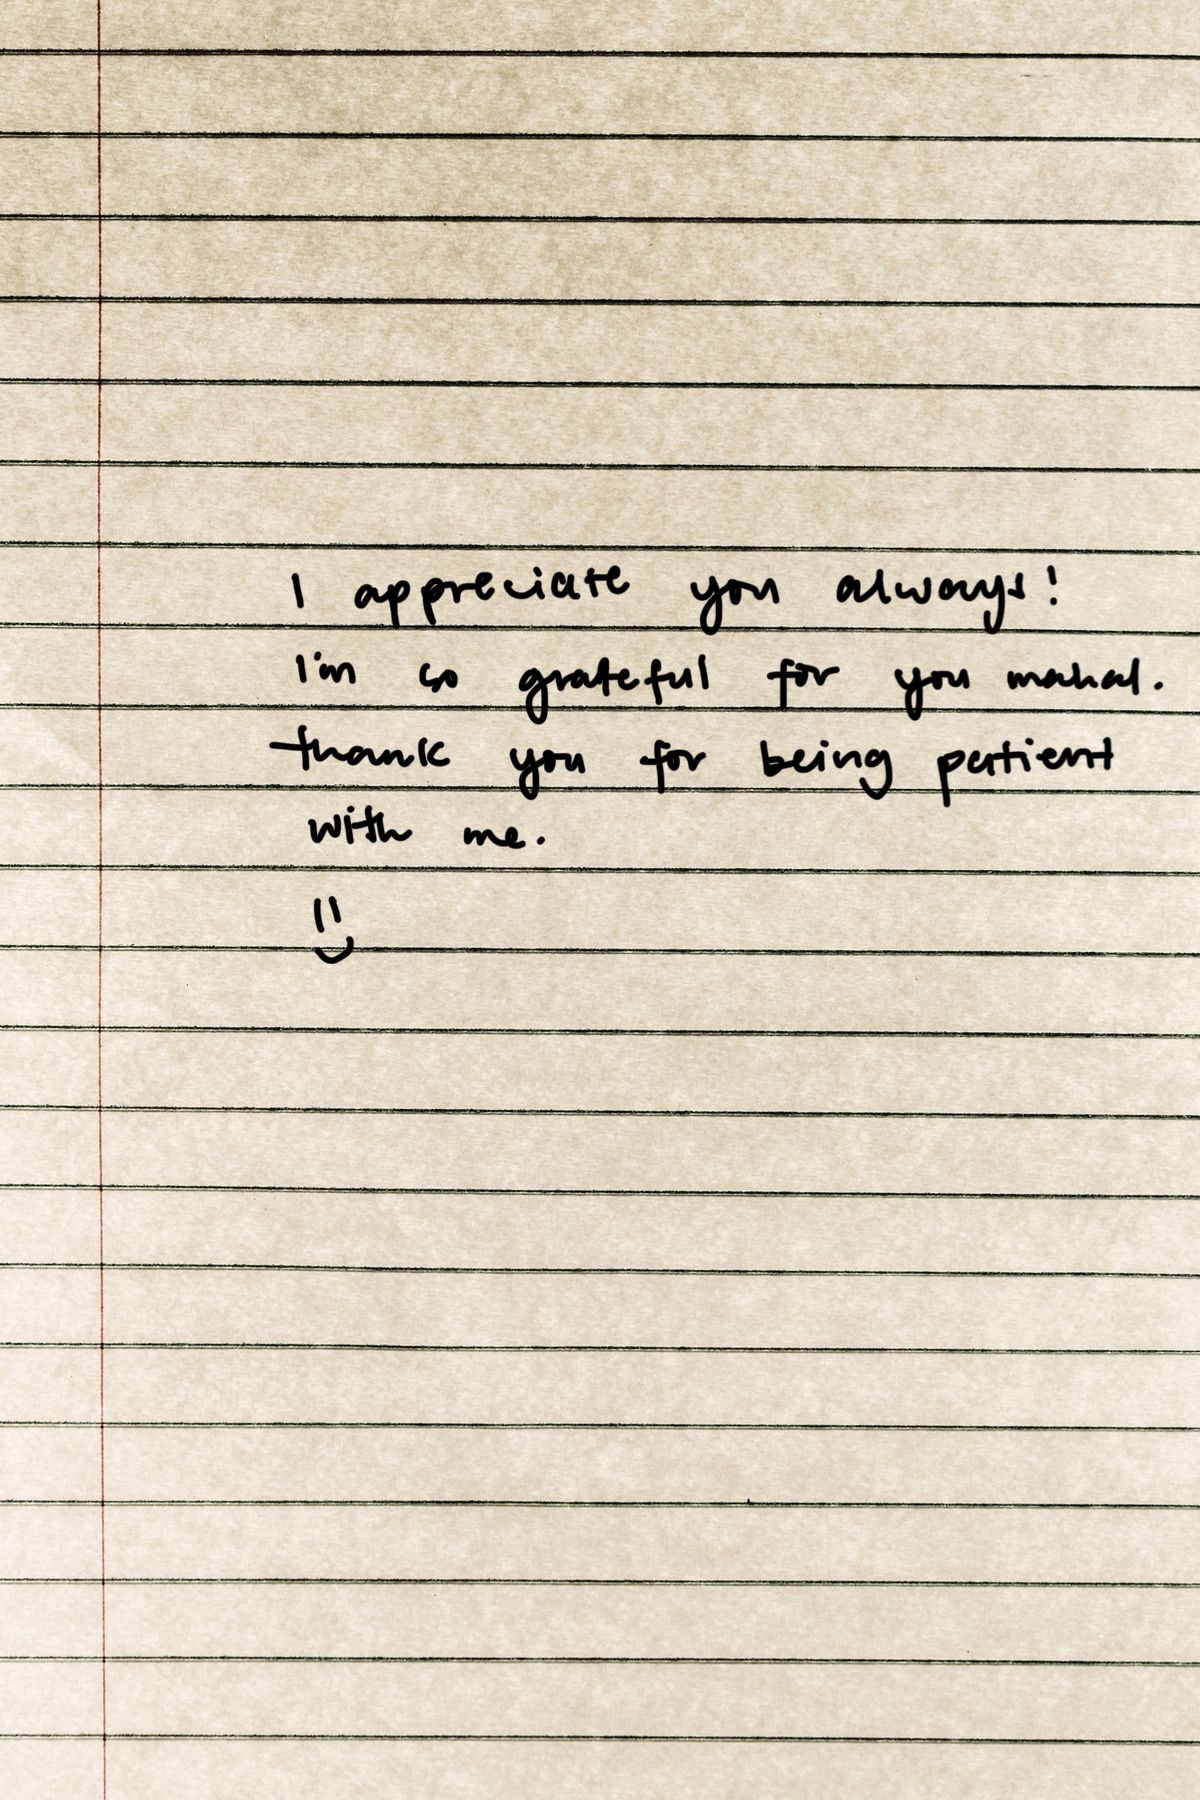 I appreciate you always!
I'm so grateful for you mahal.
thank you for being patient
with me.